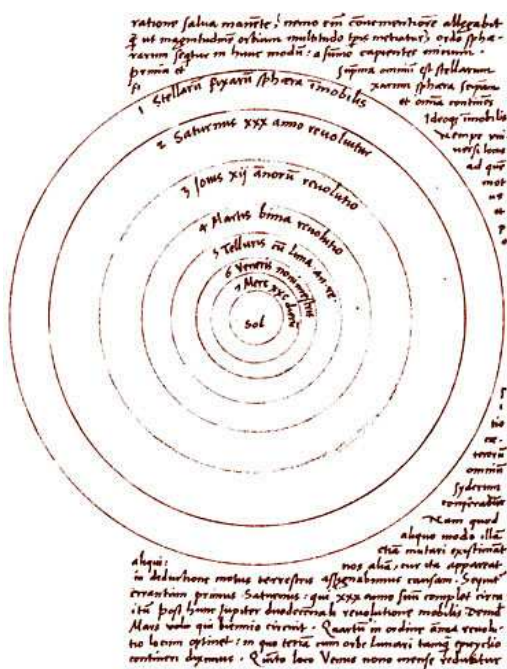 ratione salua manẽte, nemo em̃ conuenientiorẽ allegabit
q̃ ut magnitudinẽ orbium multitudo tp̃is metiatur, ordo sphæ-
rarum sequitur in hunc modũ: a summo capientes initium.
prima et suprema omniũ est stellarum
fi xarum sphæra seipsam
et omnia continens
Ideoqꝫ im̃obilis
Nempe uni
uersi locus
ad quẽ
mot
us
et
p
1 Stellarũ fixarũ sphæra im̃obilis
2 Saturnus xxx anno reuoluitur
3 Iouis xij ãnorũ reuolutio
4 Martis bima reuolutio
5 Telluris cũ luna an. re.
6 Veneris nonimestris
7 Merc xxc dierũ
Sol
tio
ce-
terorũ
omniũ
syderum
conferatur
Nam quod
aliquo modo illã
etiã mutari existimãt
aliqui: nos aliã, cur ita appareat
in deductione motus terrestris assignabimus causam. Sequit̃
errantium primus Saturnus: qui xxx anno suũ complet circu
itũ post hunc Jupiter duodecennali reuolutione mobilis Deinde
Mars uolo qui biennio circuit. Quartũ in ordine ãnua reuolu-
tio locum optinet: in quo terrã cum orbe lunari tamqꝫ epicyclio
contineri diximus. Quinto loco Venus nono mense reducitur